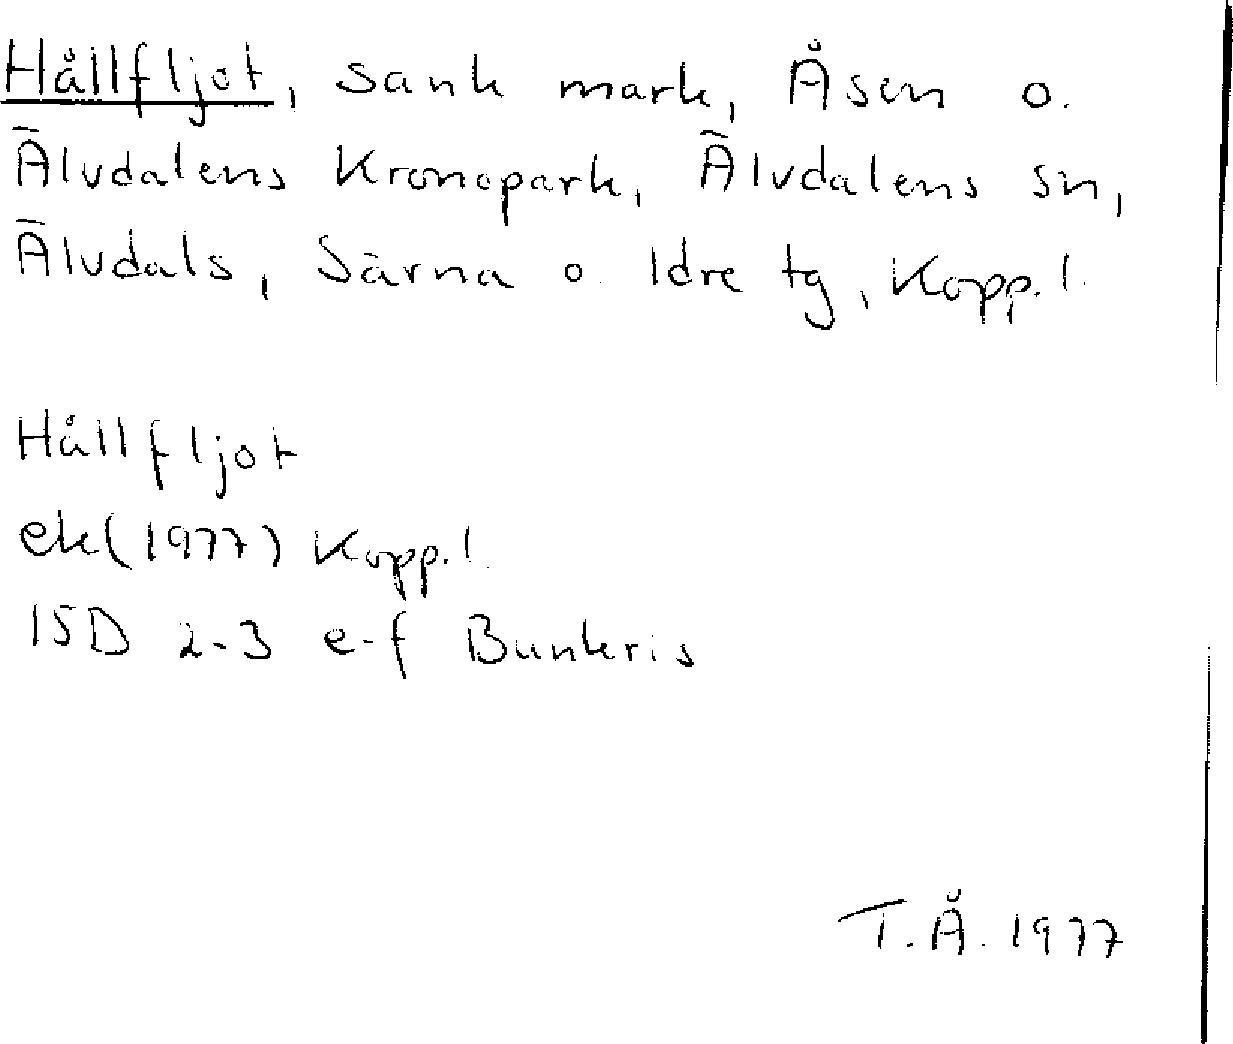 Hållfljot, sank mark, Åsen o.
Älvdalens Kronopark, Älvdalens sn,
Älvdals, Särna o. Idre tg, Kopp. l.
Hållfljot
ek (1977) Kopp. l.
15D 2-3 e-f Bunkris
T.Å. 1977